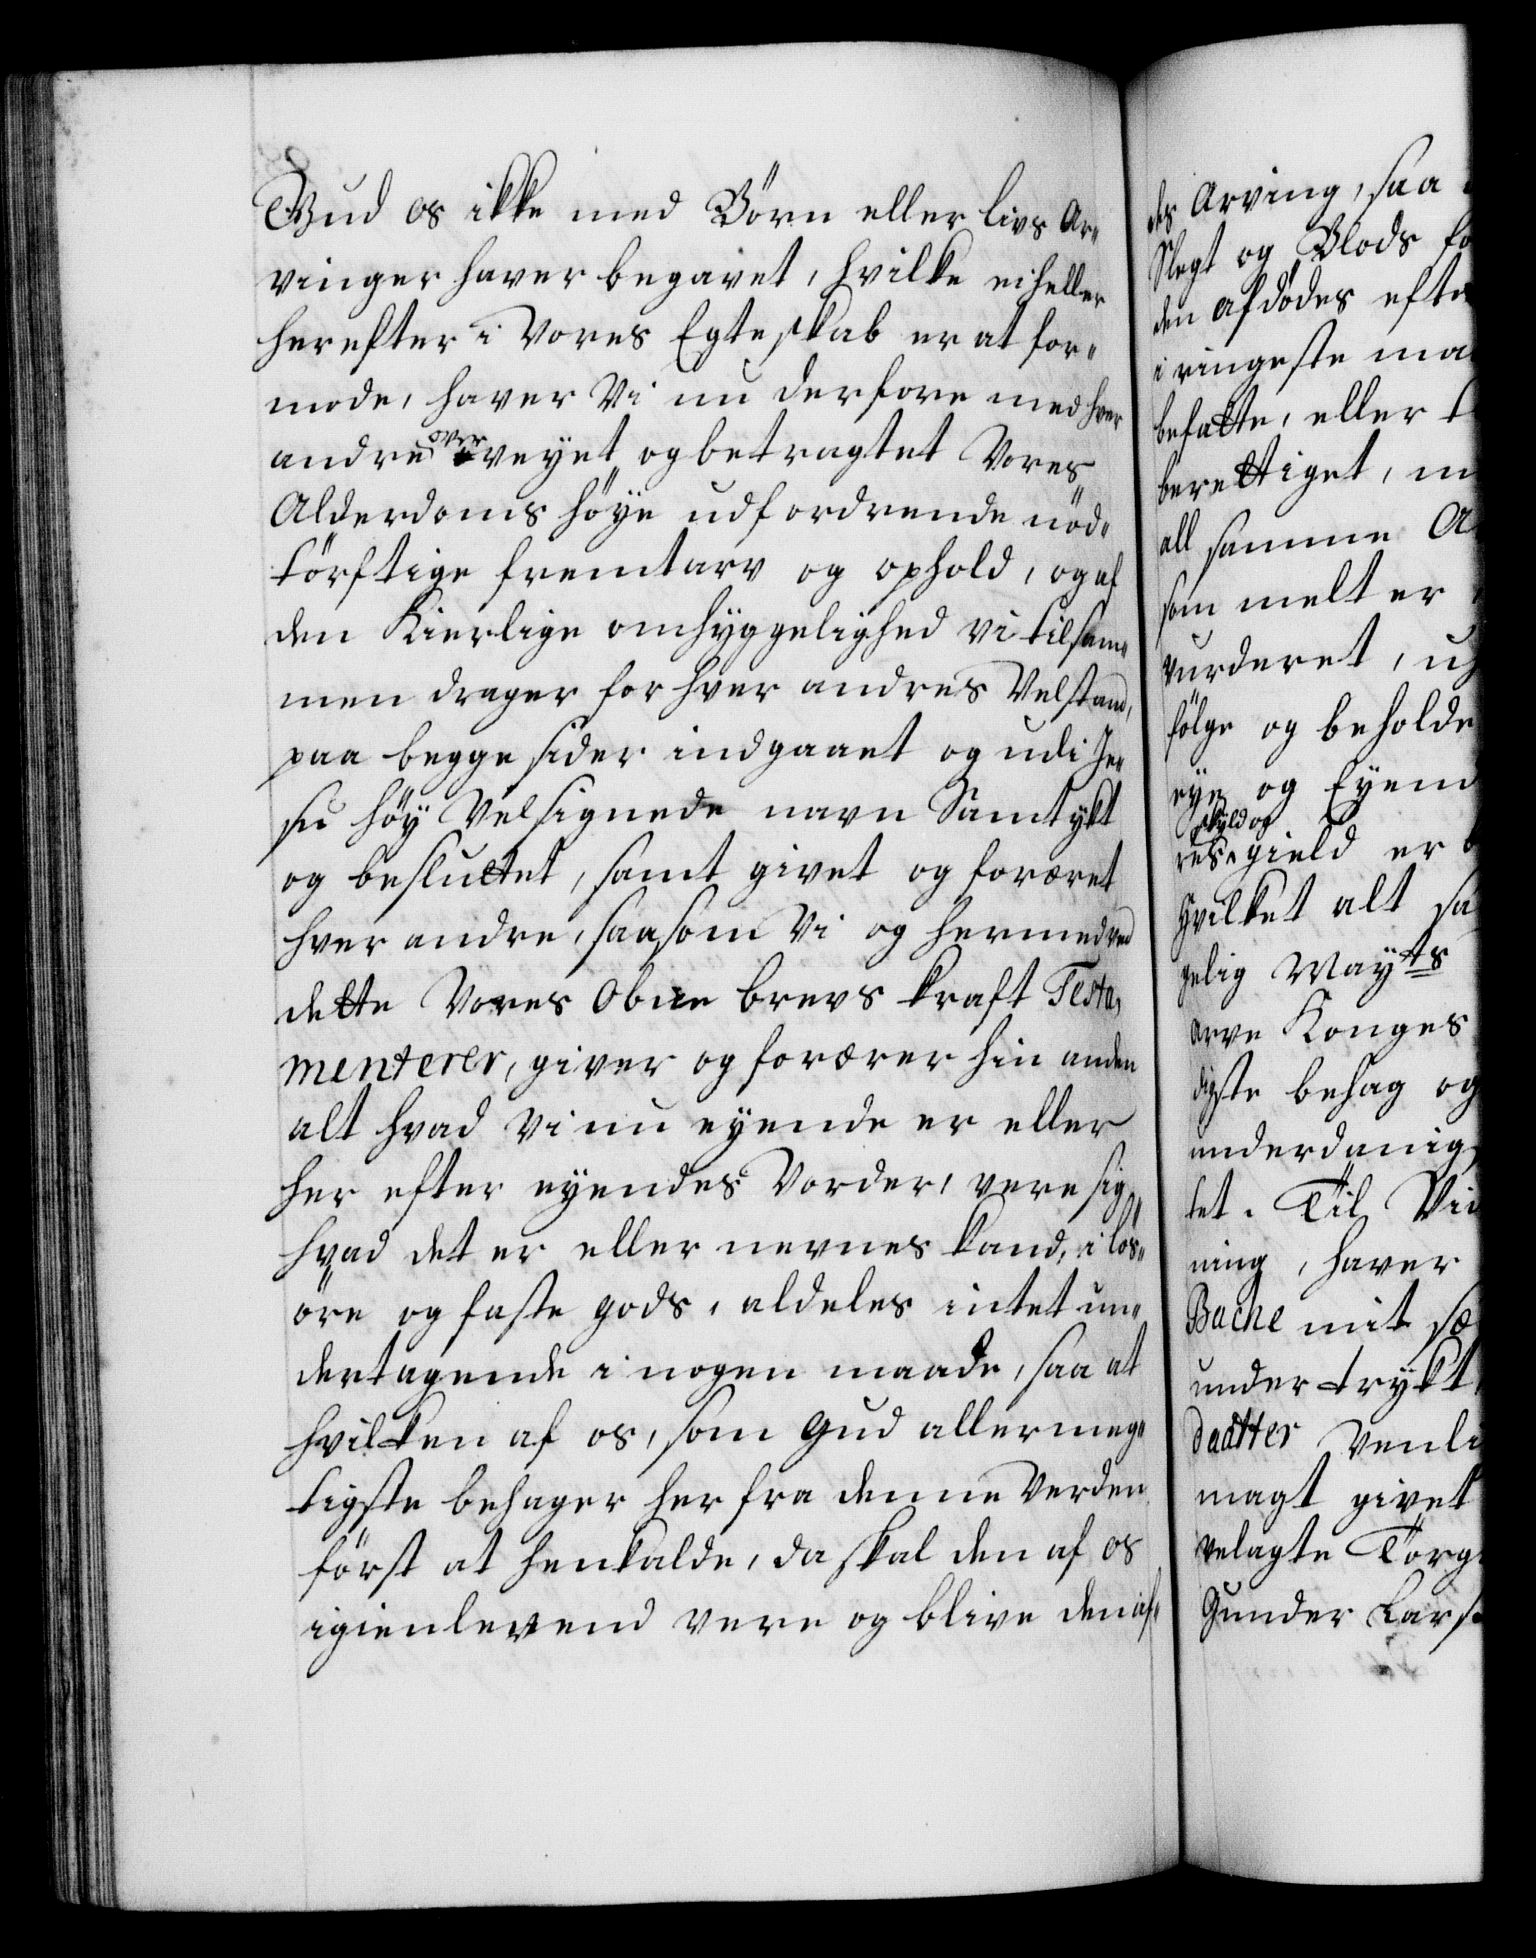 Gud os ikke med Börn eller livs Ar„
vinger haver begavet, hvilke ei heller
herefter i Vores Egteskab er at for„
mode, haver Vi nu derfore med hver
andre over veyet og betragtet Vores
Alderdoms höye udfordrende nöd„
törftige fremtarv og ophold, og af
den Kierlige omhyggelighed vi tilsam„
men drager for hver andres Velstand,
paa begge sider indgaaet og udi Je„
su höy Velsignede navn Samtykt
og besluttet, samt givet og foræret
hver andre, saasom Vi og hermed ved
dette Vores Obne brevs kraft Testa„
menterer, giver og forærer hin anden
alt hvad vi nu eyende er eller
her efter eyendes Vorder, vere sig
hvad det er eller nevnes kand, i lös„
öre og faste gods, aldeles intet un„
dertagende i nogen maade, saa at
hvilken af os, som Gud allermeg„
tigste behager her fra denne Verden
först at henkalde, da skal den af os
igienlevend vere og blive den af„
des Arving, saa
Slegt og Blods
den afdödes
i ringeste
befatte, eller
berettiget,
all samme
som melt er
vurderet,
fölge og beholde
eye og
skyld og
res gield er
hvilket alt
gelig Mayts
arve Konges
digste behag og
tet. Til
ning, haver
Bache mit
under trykt
daatter
magt givet
velagte
Gunder